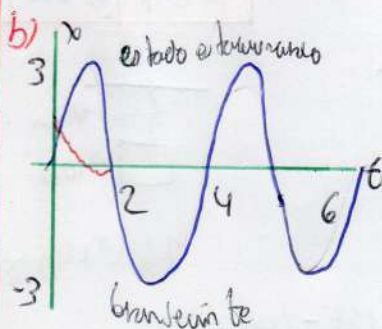 b)
x
3
estado estacionario
2
4
6
t
-3
transeinte